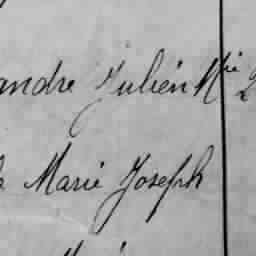 andre Julien Mie
Marie Joseph